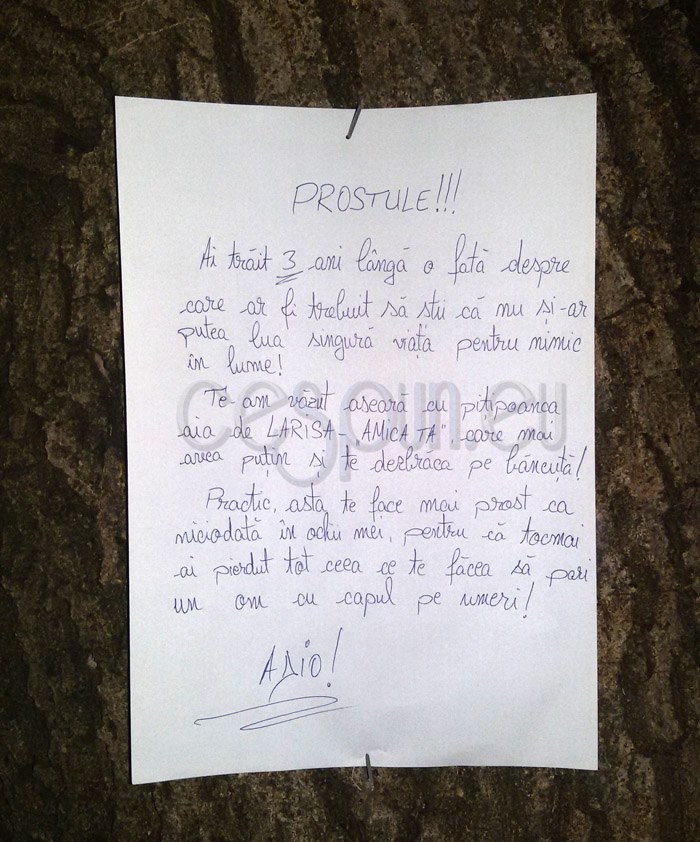 PROSTULE!!!
Ai trăit 3 ani lângă o fată despre
care ar fi trebuit să știi că nu și-ar
putea lua singură viața pentru nimic
în lume!
Te am văzut aseară cu pițipoanca
aia de LARISA-„AMICA TA", care mai
avea puțin și te dezbrăca pe băncuță!
Practic, asta te face mai prost ca
niciodată în ochii mei, pentru că tocmai
ai pierdut tot ceea ce te făcea să pari
un om cu capul pe umeri!
ADIO!
cespun.eu